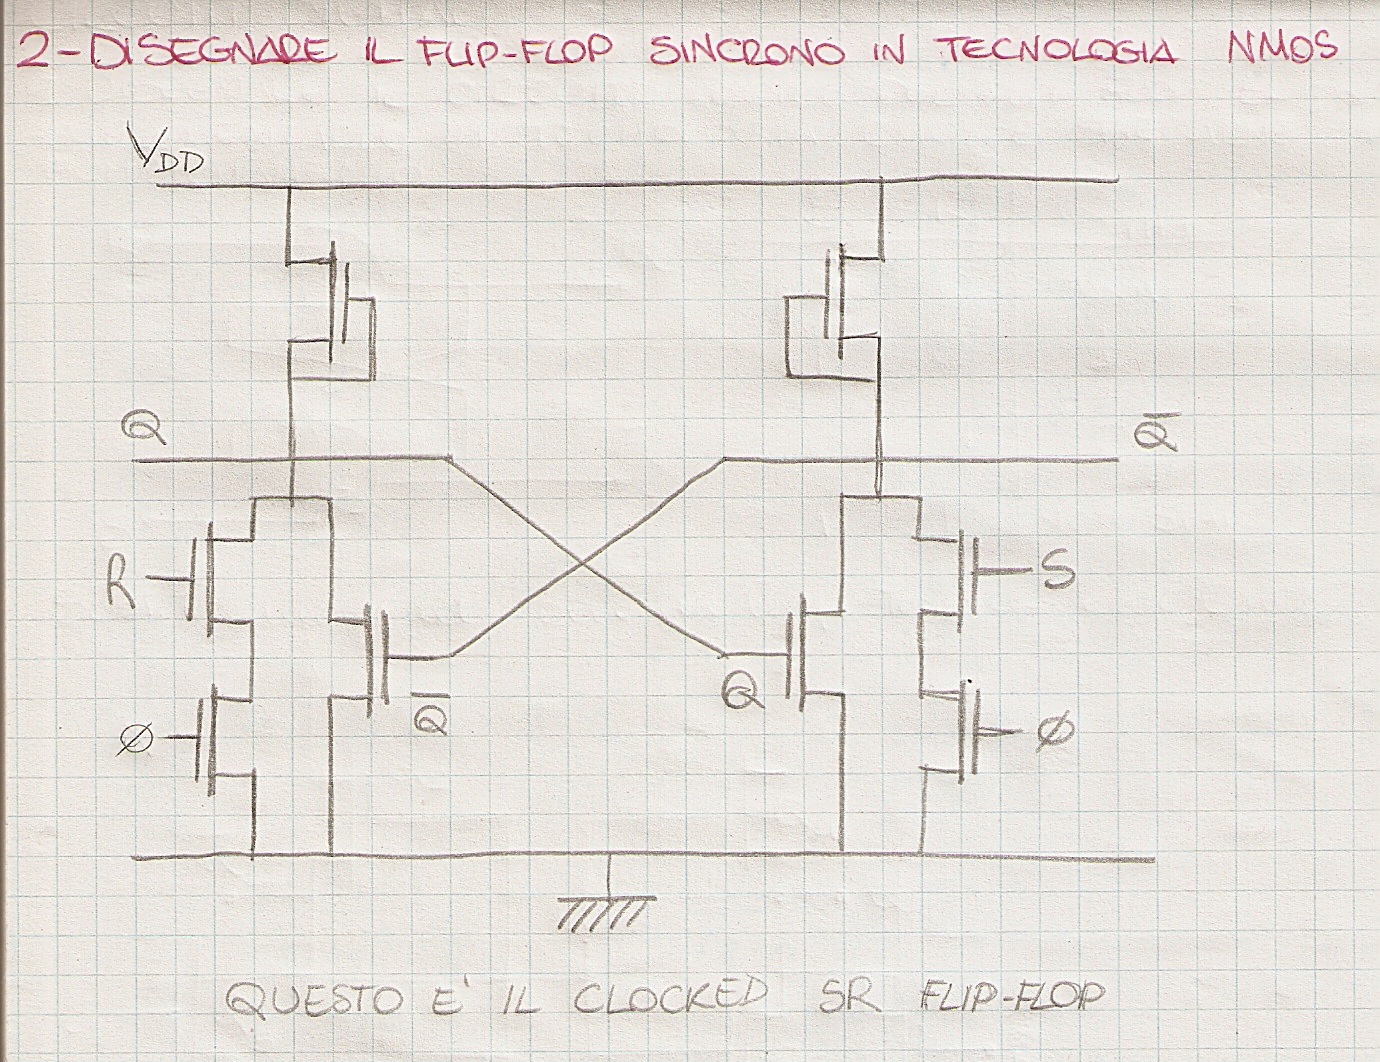 2-DISEGNARE IL FLIP-FLOP SINCRONO IN TECNOLOGIA NMOS
VDD
Q
Q̅
R
S
Q̅
Q
Ø
Ø
QUESTO E' IL CLOCKED SR FLIP-FLOP